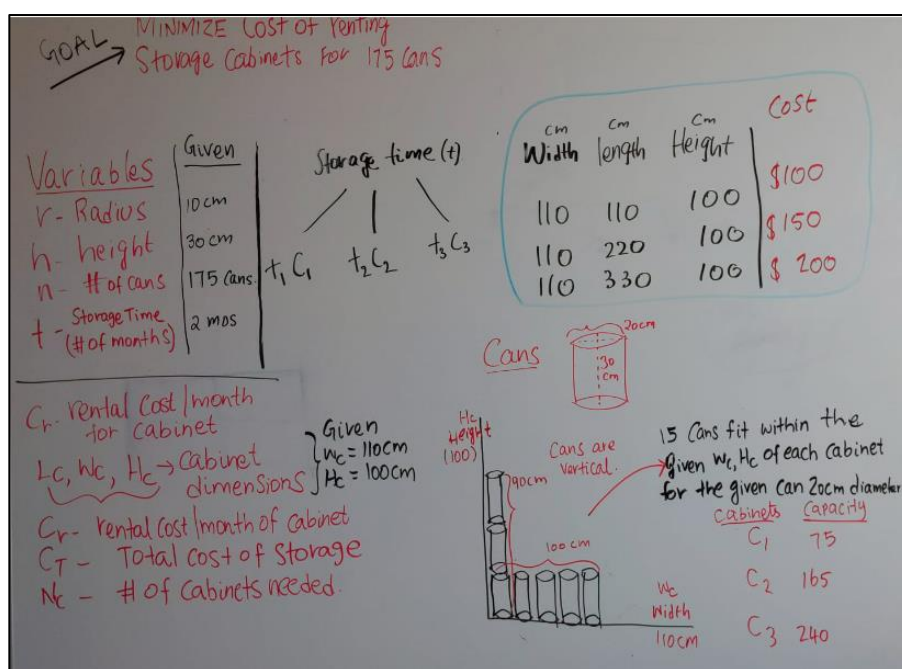 GOAL MINIMIZE Cost of renting
Storage Cabinets for 175 Cans
Variables
Given
r - Radius 10cm
h - height 30cm
n - # of cans 175 Cans.
t - Storage Time (# of months) 2 mos
Storage time (t)
t₁C₁ t₂C₂ t₃C₃
cm cm cm
Width length Height Cost
110 110 100 $100
110 220 100 $150
110 330 100 $200
Cans
20cm
30
cm
Cr- rental Cost/month
for cabinet
Lc, Wc, Hc → Cabinet
dimensions
Given
Wc = 110cm
Hc = 100cm
Cr- rental cost/month of cabinet
CT - Total cost of Storage
Nc - # of cabinets needed.
Hc
Height
(100)
Cans are
Vertical.
90cm
100 cm
Wc
Width
110cm
15 Cans fit within the
given Wc, Hc of each cabinet
for the given can 20cm diameter
Cabinets Capacity
C₁ 75
C₂ 165
C₃ 240